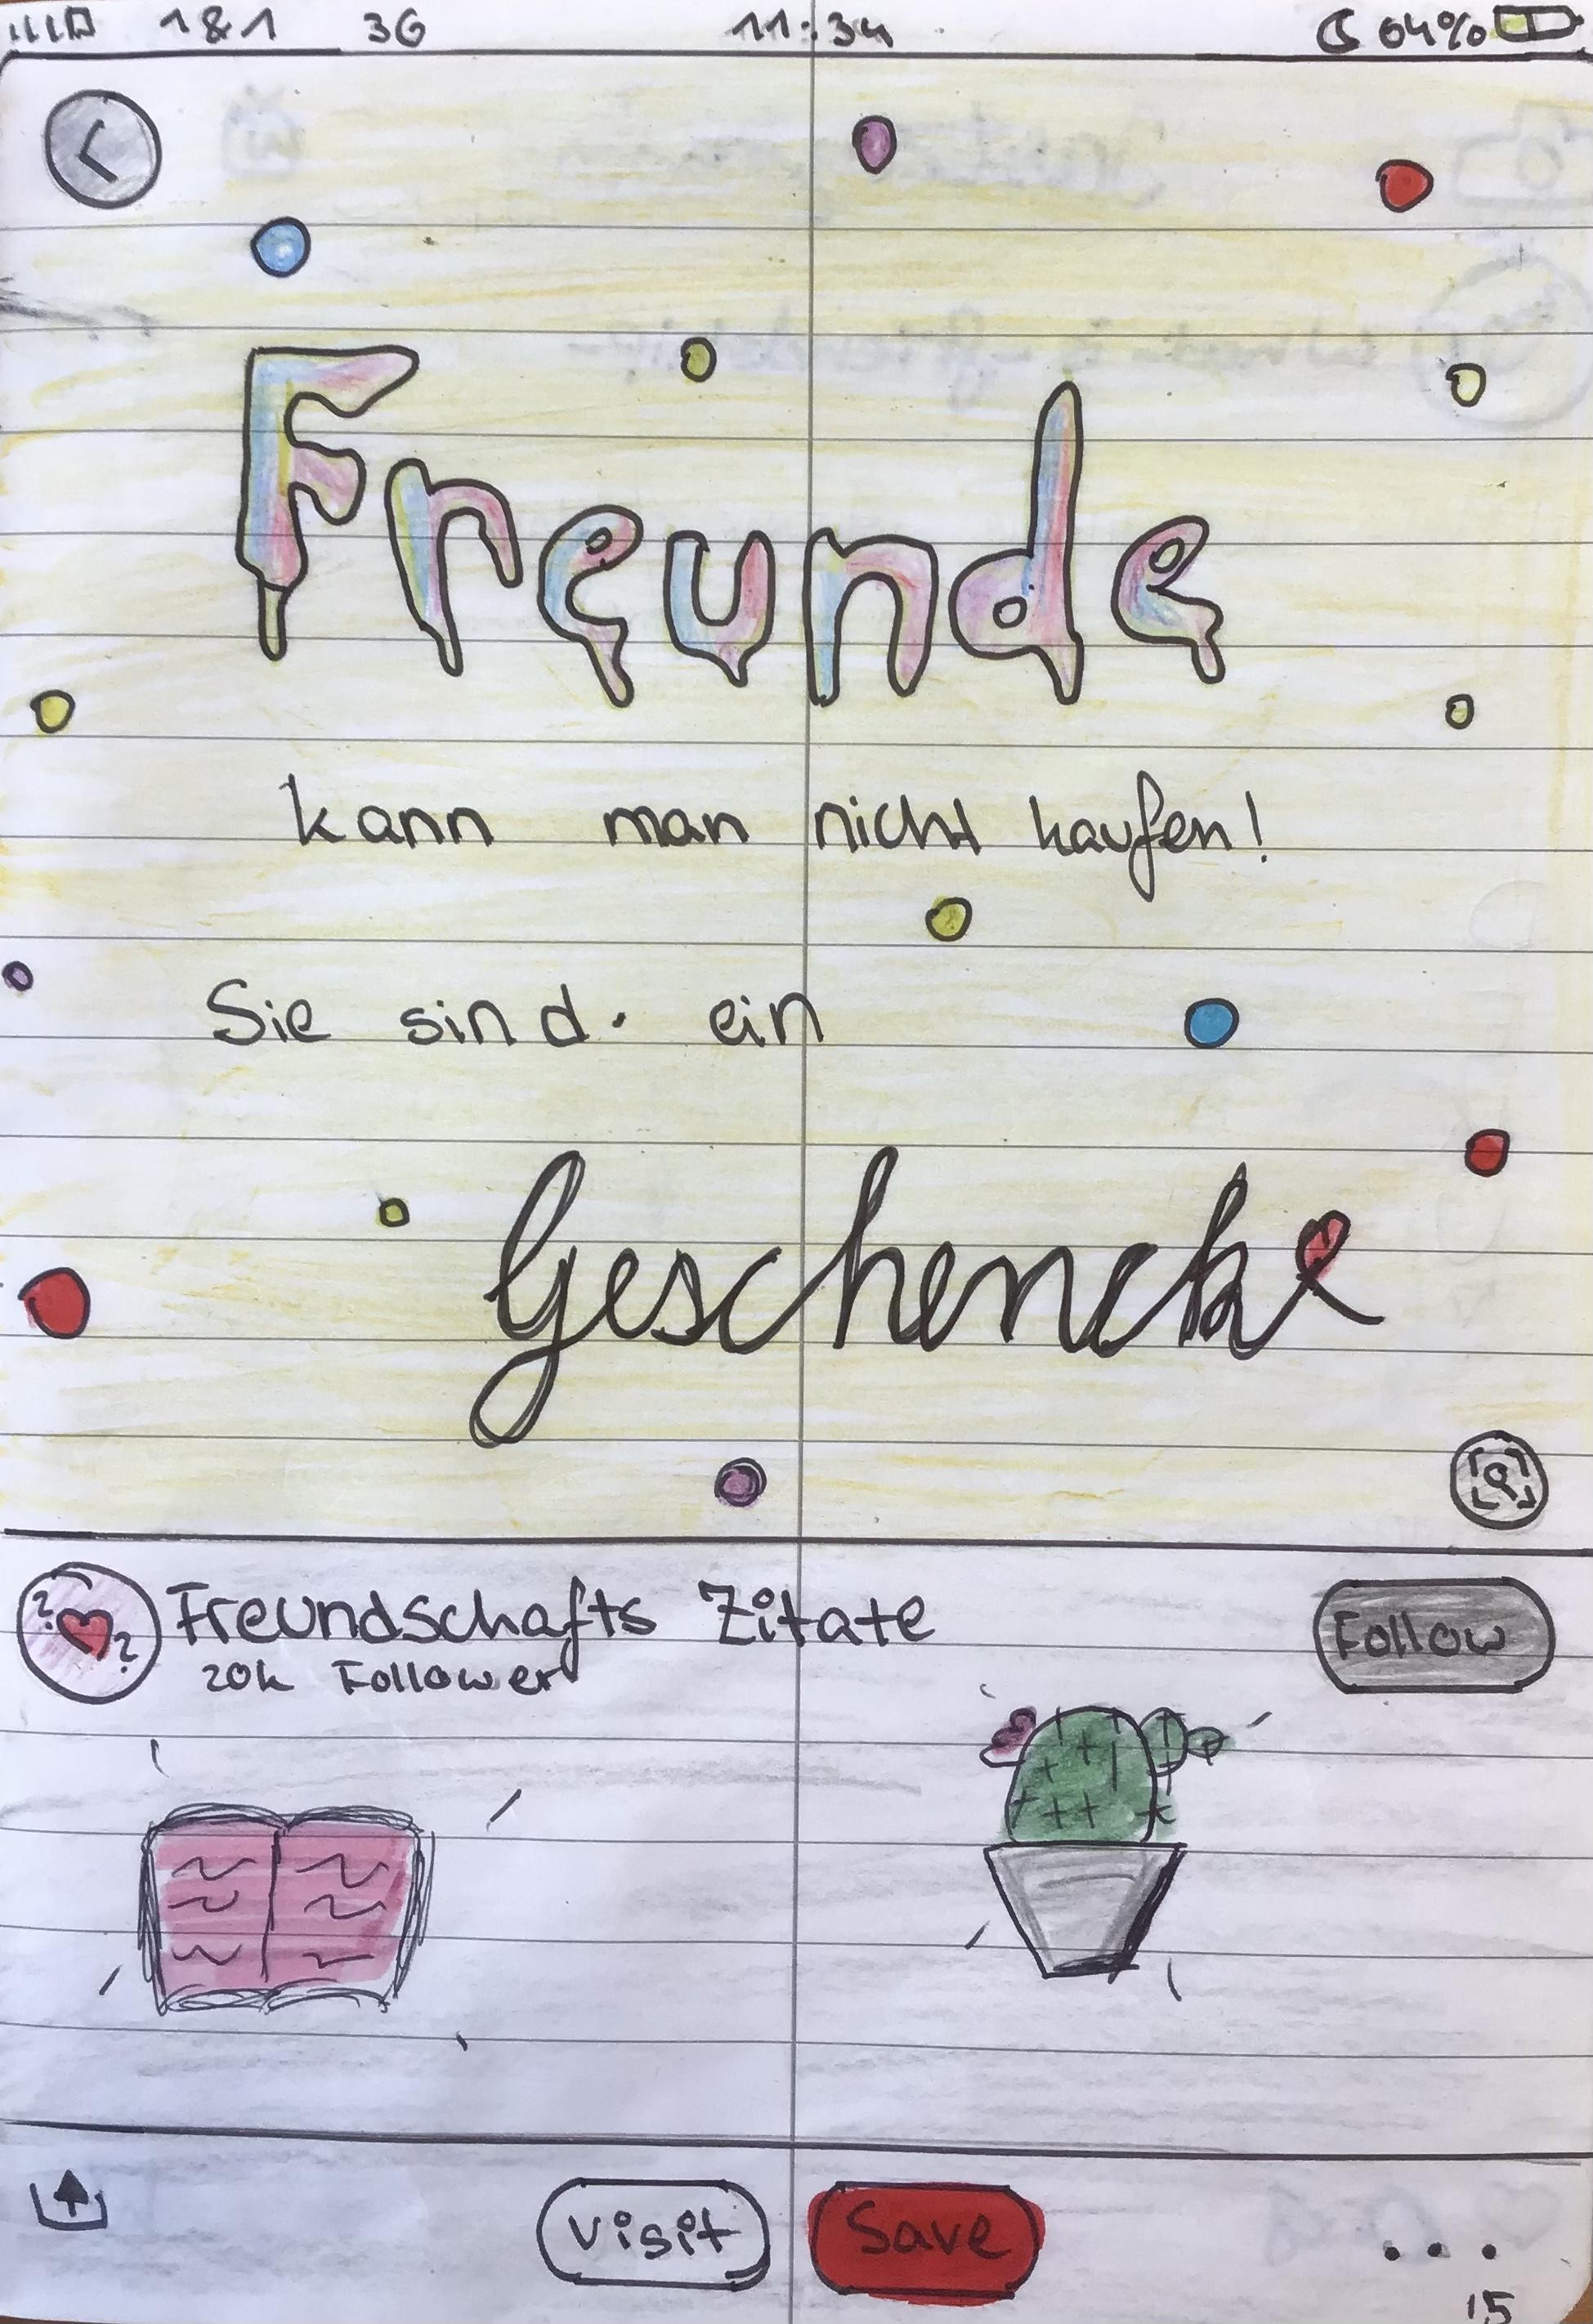 1&1 3G 11:34 64%
Freunde
kann man nicht kaufen!
Sie sind ein
Geschencke
Freundschafts Zitate
20k Follower
Follow
visit Save ...
15